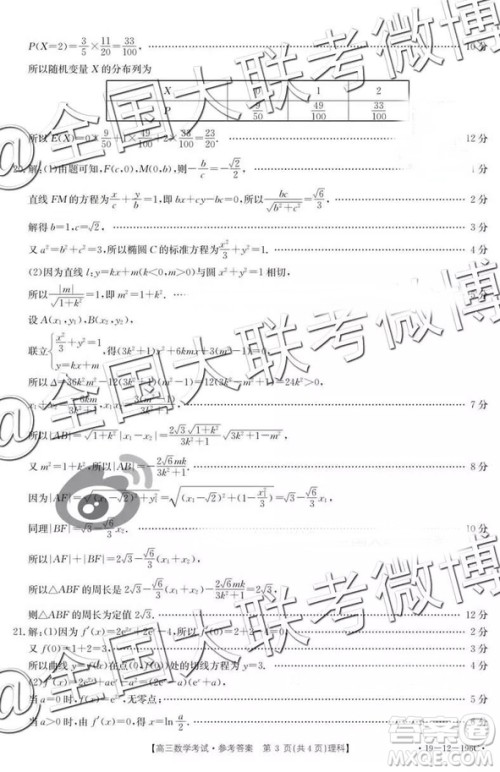 P(X=2)=3/5×11/20=33/100, 10分
所以随机变量 X 的分布列为
X 0 1 2
P 9/50 49/100 33/100
所以 E(X)=0×9/50+1×49/100+2×33/100=23/20. 12分
20.解:(1)由题可知,F(c,0),M(0,b),则-b/c=-√2/2, 1分
直线 FM 的方程为x/c+y/b=1,即 bx+cy-bc=0,所以bc/√(b²+c²)=√6/3, 2分
解得 b=1,c=√2, 3分
又 a²=b²+c²=3,所以椭圆 C 的标准方程为x²/3+y²=1. 4分
(2)因为直线 l:y=kx+m(k<0,m>0)与圆 x²+y²=1 相切,
所以|m|/√(1+k²)=1,即 m²=1+k².
设 A(x₁,y₁),B(x₂,y₂),
联立{x²/3+y²=1, y=kx+m, 得(3k²+1)x²+6kmx+3(m²-1)=0,
所以 Δ=36k²m²-12(3k²+1)(m²-1)=12(3k²-m²+1)=24k²>0,
7分
所以|AB|=√(1+k²)|x₁-x₂|=2√3√(1+k²)/(3k²+1)·√(3k²+1-m²).
又 m²=1+k²,所以|AB|=-2√6mk/(3k²+1). 8分
因为|AF|=√((x₁-√2)²+y₁²)=√((x₁-√2)²+(1-x₁²/3))=√3-√6/3x₁,
同理|BF|=√3-√6/3x₂. 10分
所以|AF|+|BF|=2√3-√6/3(x₁+x₂),
所以△ABF 的周长是 2√3-√6/3(x₁+x₂)-2√6mk/(3k²+1),
则△ABF 的周长为定值 2√3. 12分
21.解:(1)因为 f′(x)=2e²ˣ+2eˣ-4,所以 f′(0)=2+2-4=0, 1分
又 f(0)=3, 2分
所以曲线 y=f(x)在点(0,f(0))处的切线方程为 y=3. 4分
当 a=0 时,f(x)=e²ˣ,无零点; 5分
当 a>0 时,由 f′(x)=0,得 x=ln a/2.
【高三数学考试·参考答案 第 3 页(共 4 页)理科】
·19-12-196C·
@全国大联考微博
@全国大联考微博